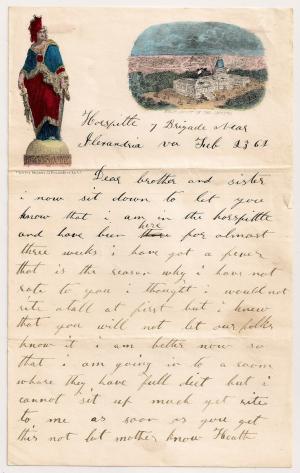 Horspitle 7 Brigade Near
Alexandria va Feb 23 62
Dear brother and sister
i now sit down to let you
know that i am in the horspittle
and have been here for almost
three weeks i have got a fever
that is the reason why i have not
rote to you i thought i would not
rite atall at first but i knew
that you will not let our folks
know it i am better now so
that i am going in to a room
whare they have full diet but i
cannot set up much yet rite
to me as soon as you get
this not let mother know Heath